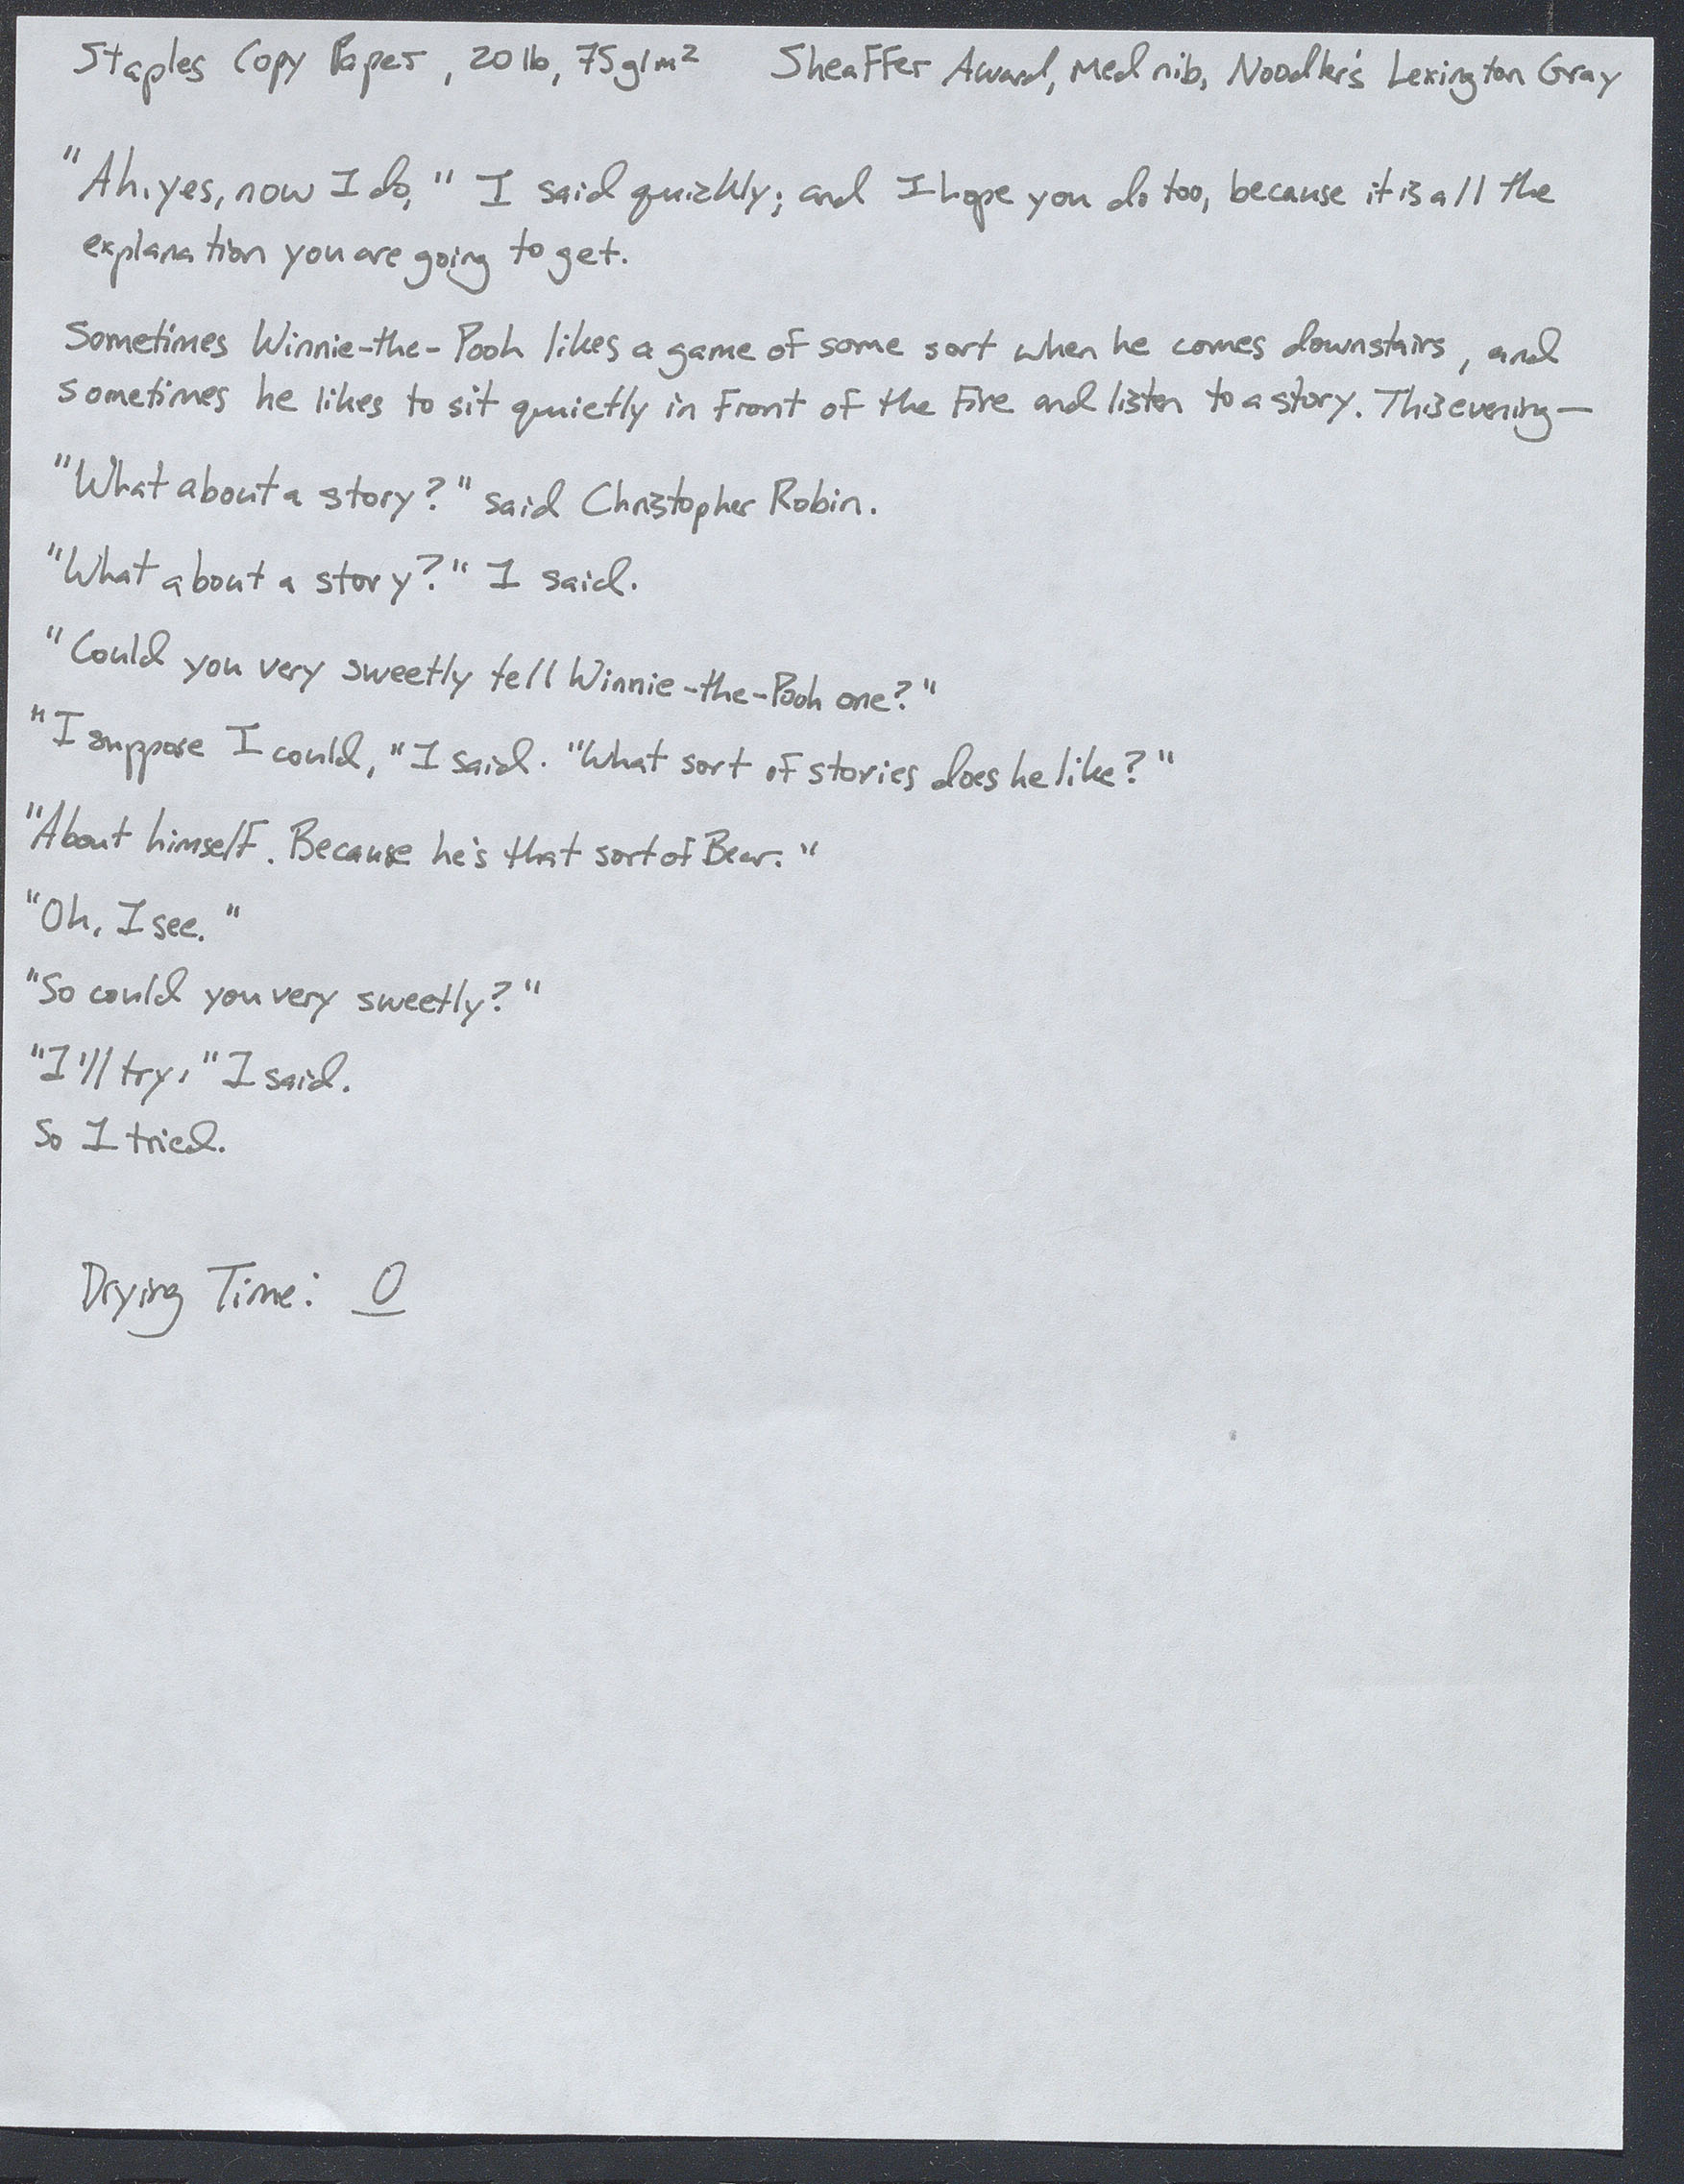 Staples Copy Paper, 20 lb, 75g/m² Sheaffer Award, Med nib, Noodler's Lexington Gray
"Ah, yes, now I do," I said quickly; and I hope you do too, because it is all the
explanation you are going to get.
Sometimes Winnie-the-Pooh likes a game of some sort when he comes downstairs, and
sometimes he likes to sit quietly in front of the fire and listen to a story. This evening—
"What about a story?" said Christopher Robin.
"What about a story?" I said.
"Could you very sweetly tell Winnie-the-Pooh one?"
"I suppose I could," I said. "What sort of stories does he like?"
"About himself. Because he's that sort of Bear."
"Oh, I see."
"So could you very sweetly?"
"I'll try," I said.
So I tried.
Drying Time: 0